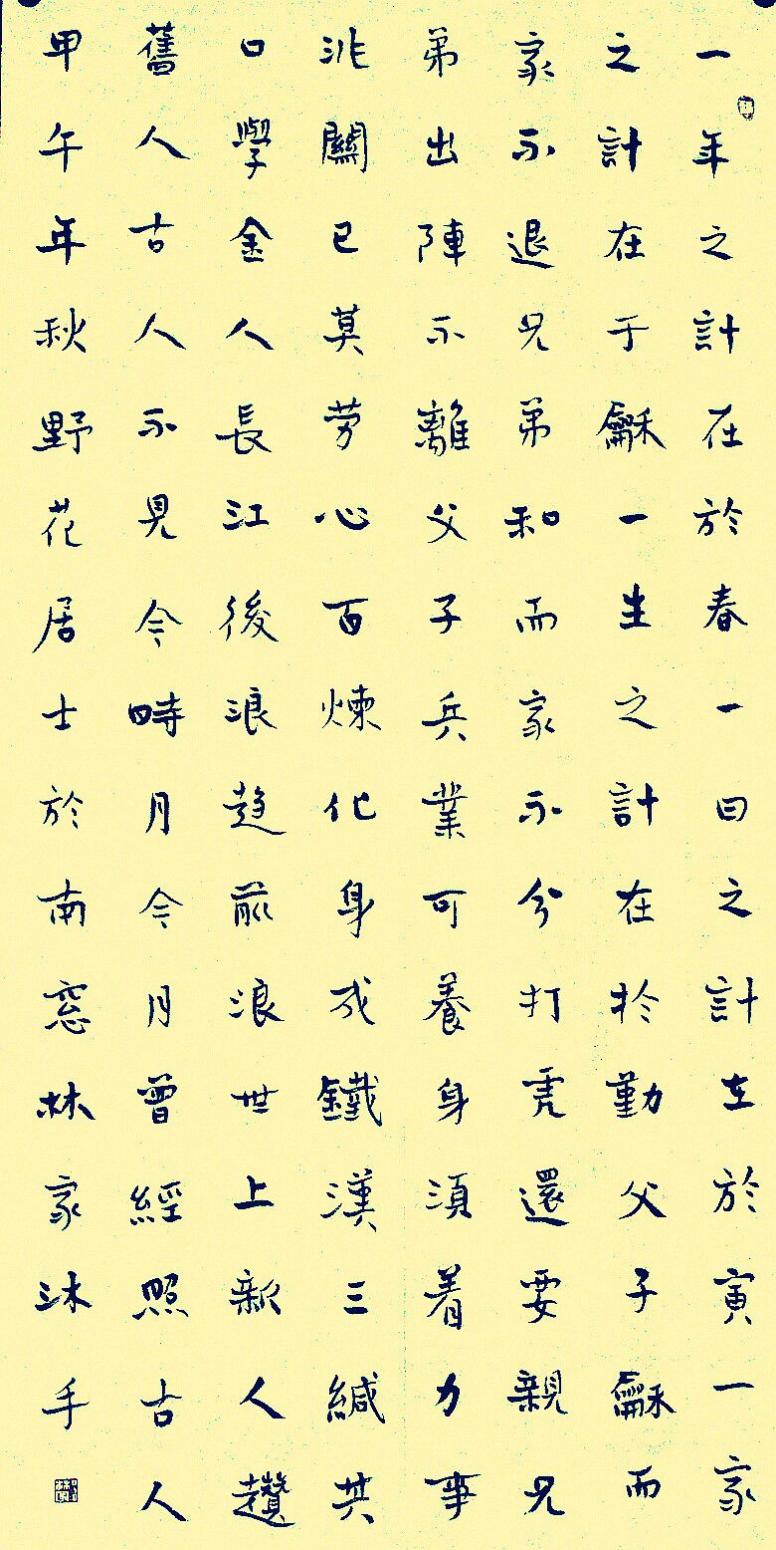 一年之計在於春一日之計在於寅一家
之計在于龢一生之計在於勤父子龢而
家不退兄弟和而家不分打虎還要親兄
弟出陣不離父子兵業可養身須着力事
非關已莫劳心百煉化身成鐵漢三緘共
口學金人長江後浪趋前浪世上新人趲
舊人古人不見今時月今月曾經照古人
甲午年秋野花居士於南窓林家沐手